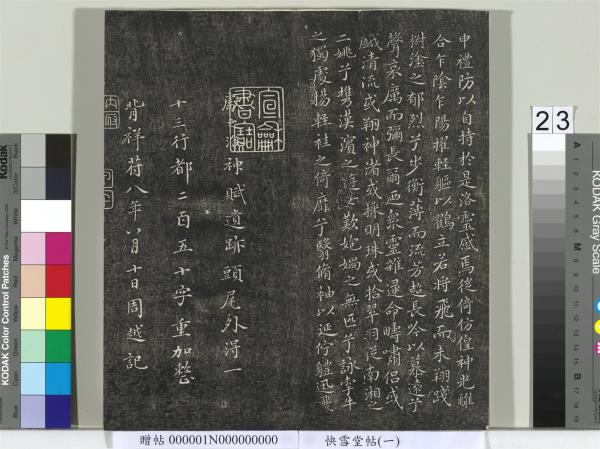 申禮防以自持於是洛靈感焉徙倚仿偟神光離
合乍陰乍陽擢輕軀以鶴立若將飛而未翔踐
椒塗之郁烈兮步衡薄而流芳超長吟以慕遠兮
聲哀厲而彌長爾迺衆靈雜遝命疇嘯侶或
戲清流或翔神渚或採明珠或拾翠羽從南湘之
二姚兮攜漢濱之遊女歎匏媧之無匹兮詠牽牛
之獨處揚輕袿之倚靡兮翳脩袖以延佇體迅飛
神賦遺跡頭尾外得一
十三行都二百五十字重加整
背祥符八年八月十日周越記
內府
23
贈帖 000001N000000000
快雪堂帖(一)
KODAK Color Control Patches
Kodak
Blue
Cyan
Green
Yellow
Red
Magenta
White
3/Color
Black
KODAK Gray Scale
A
1
2
3
4
5
6
M
8
9
10
11
12
13
14
15
B
17
18
19